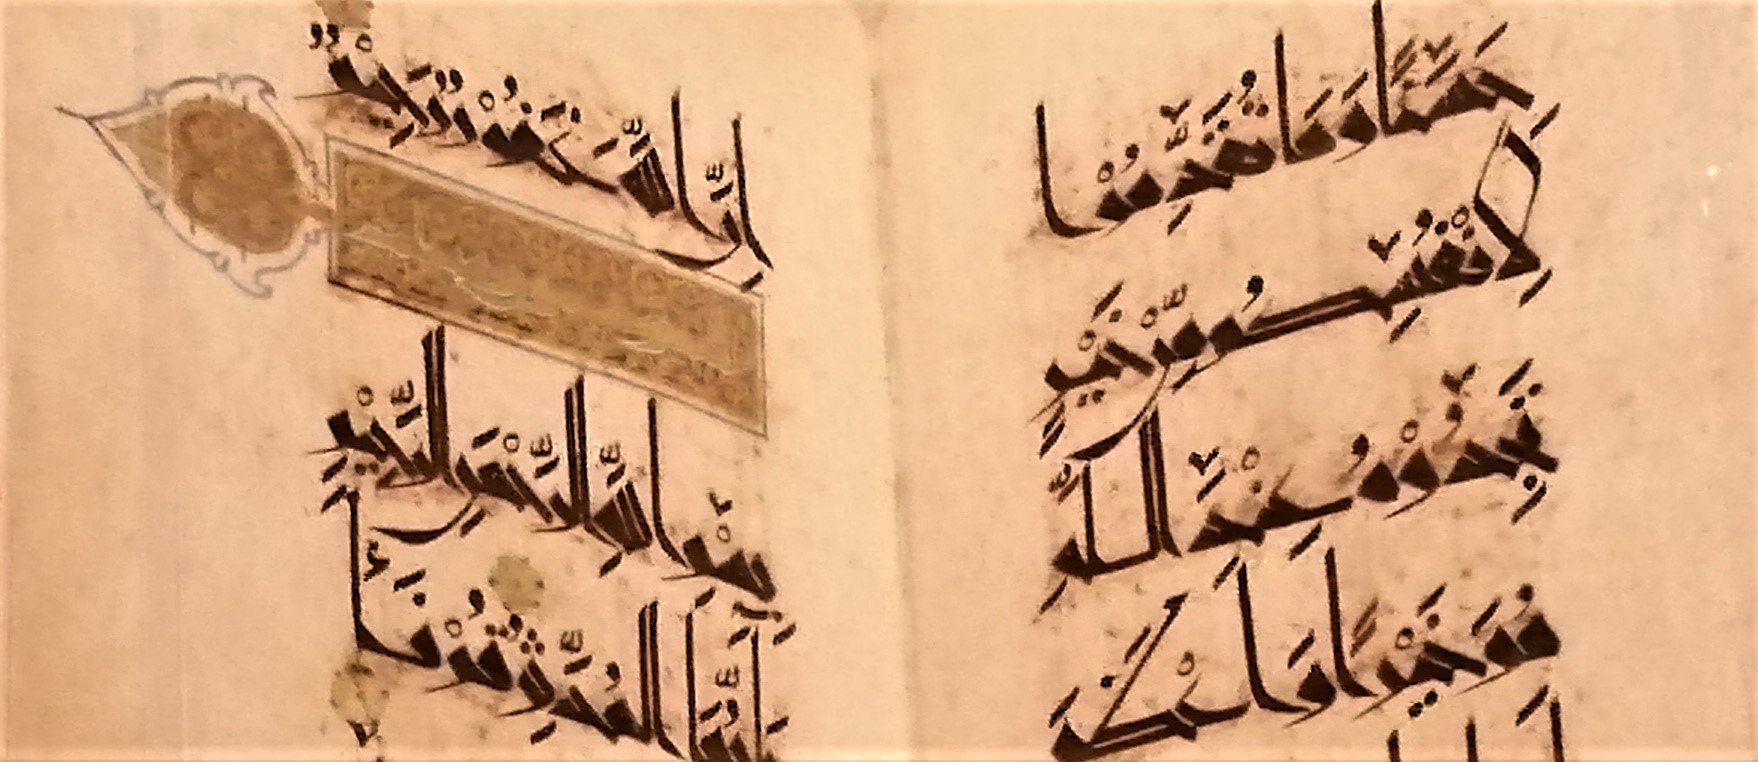 حَسَنًا وَمَا تُقَدِّمُوا
لِأَنْفُسِكُمْ مِنْ خَيْرٍ
تَجِدُوهُ عِنْدَ اللَّهِ
هُوَ خَيْرًا وَأَعْظَمَ
إِنَّ اللَّهَ غَفُورٌ رَحِيمٌ
بِسْمِ اللَّهِ الرَّحْمَنِ الرَّحِيمِ
يَأَيُّهَا الْمُدَّثِّرُ قُمْ فَأَ